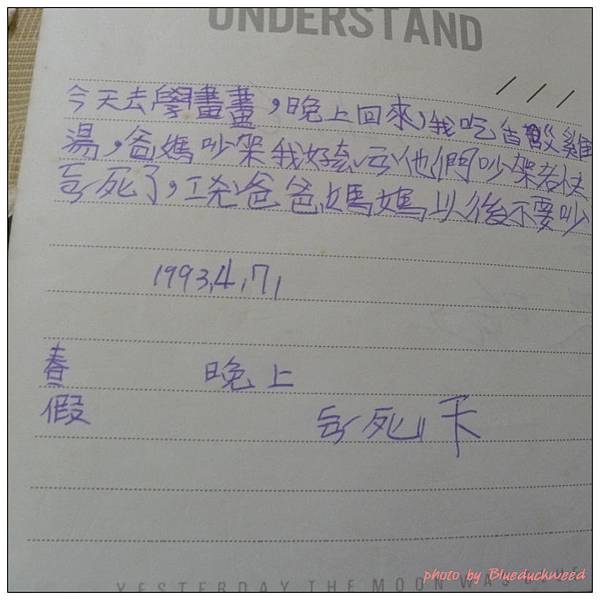 UNDERSTAND
今天去學畫畫,晚上回來,我吃香雞
湯,爸媽吵架我好他們吵架快
死了,爸爸媽媽以後不要吵
1993,4,7,
春假
晚上
死
YESTERDAY THE MOON WAS
photo by Blueduckweed